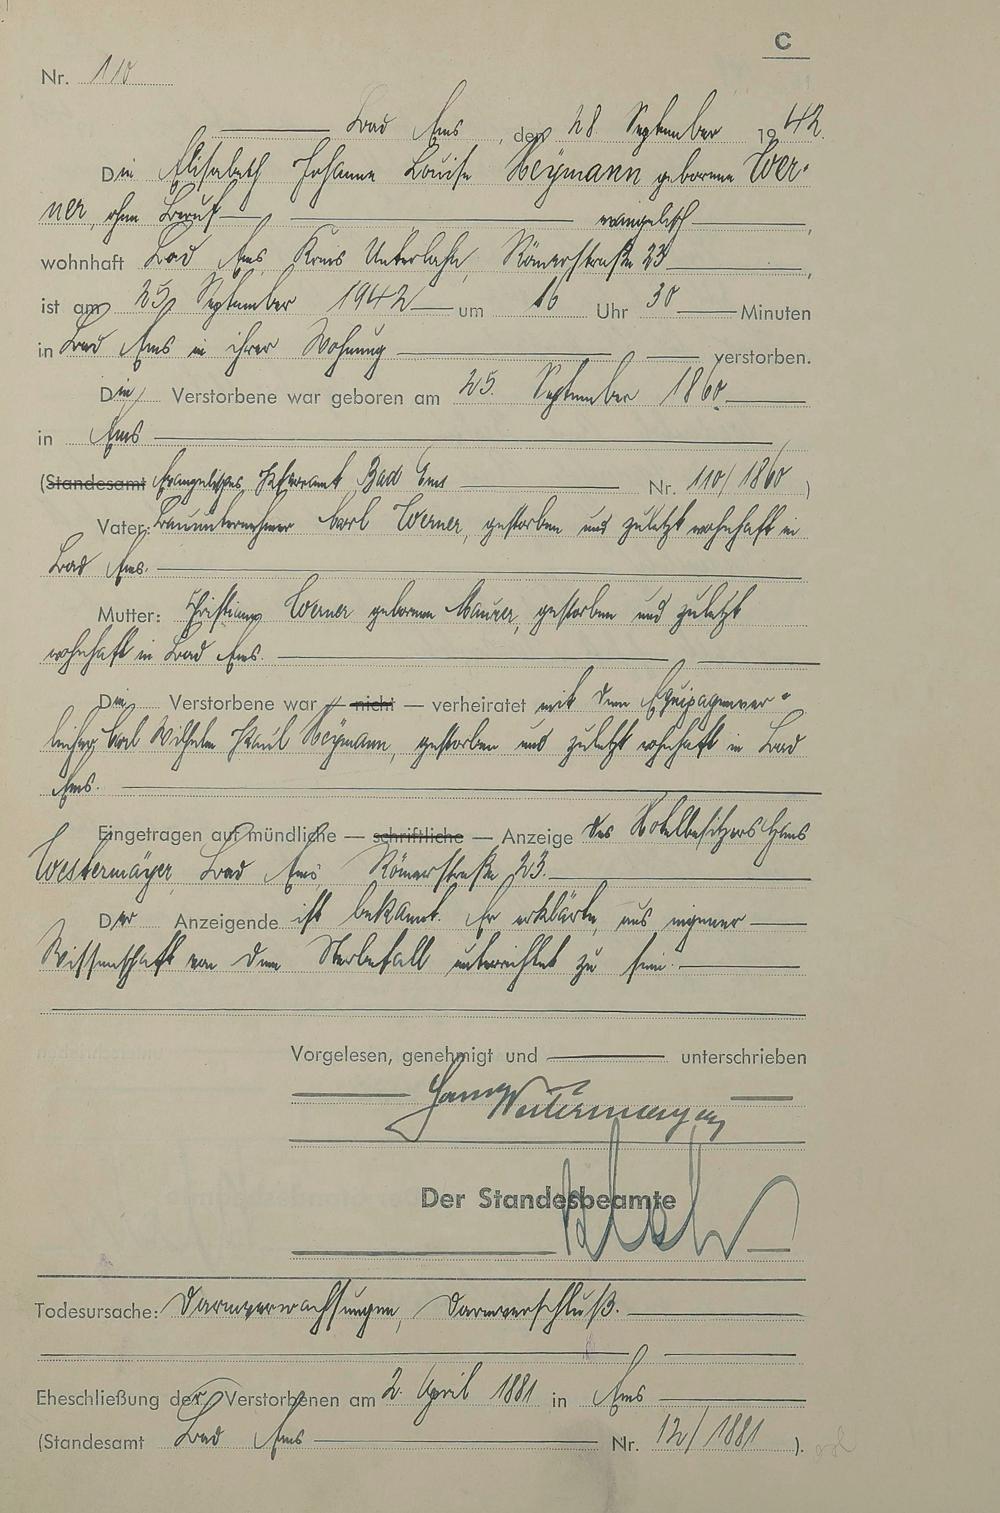 C
Nr. 110
Bad Ems, den 28. September 1942.
Die Elisabeth Johanne Louise Heymann geborene Wer-
ner, ohne Beruf evangelisch,
wohnhaft Bad Ems, Kreis Unterlahn, Römerstraße 23,
ist am 25. September 1942 um 16 Uhr 30 Minuten
in Bad Ems in ihrer Wohnung verstorben.
Die Verstorbene war geboren am 25. September 1860
in Ems
(Standesamt Evangelisches Pfarramt Bad Ems Nr. 110/1860)
Vater: Bauunternehmer Carl Werner, gestorben und zuletzt wohnhaft in
Bad Ems.
Mutter: Christiane Werner geborene Maurer, gestorben und zuletzt
wohnhaft in Bad Ems.
Die Verstorbene war — nicht — verheiratet mit dem Equipagenver-
leiher Carl Wilhelm Paul Heymann, gestorben und zuletzt wohnhaft in Bad
Ems.
Eingetragen auf mündliche — schriftliche — Anzeige des Hotelbesitzers Hans
Westermayer, Bad Ems, Römerstraße 23.
Der Anzeigende ist bekannt. Er erklärte, aus eigener
Wissenschaft von dem Sterbefall unterrichtet zu sein.
Vorgelesen, genehmigt und unterschrieben
Hans Westermayer
Der Standesbeamte
Todesursache: Darmverwachsungen, Darmverschluß.
Eheschließung der Verstorbenen am 2. April 1881 in Ems
(Standesamt Bad Ems Nr. 12/1881).